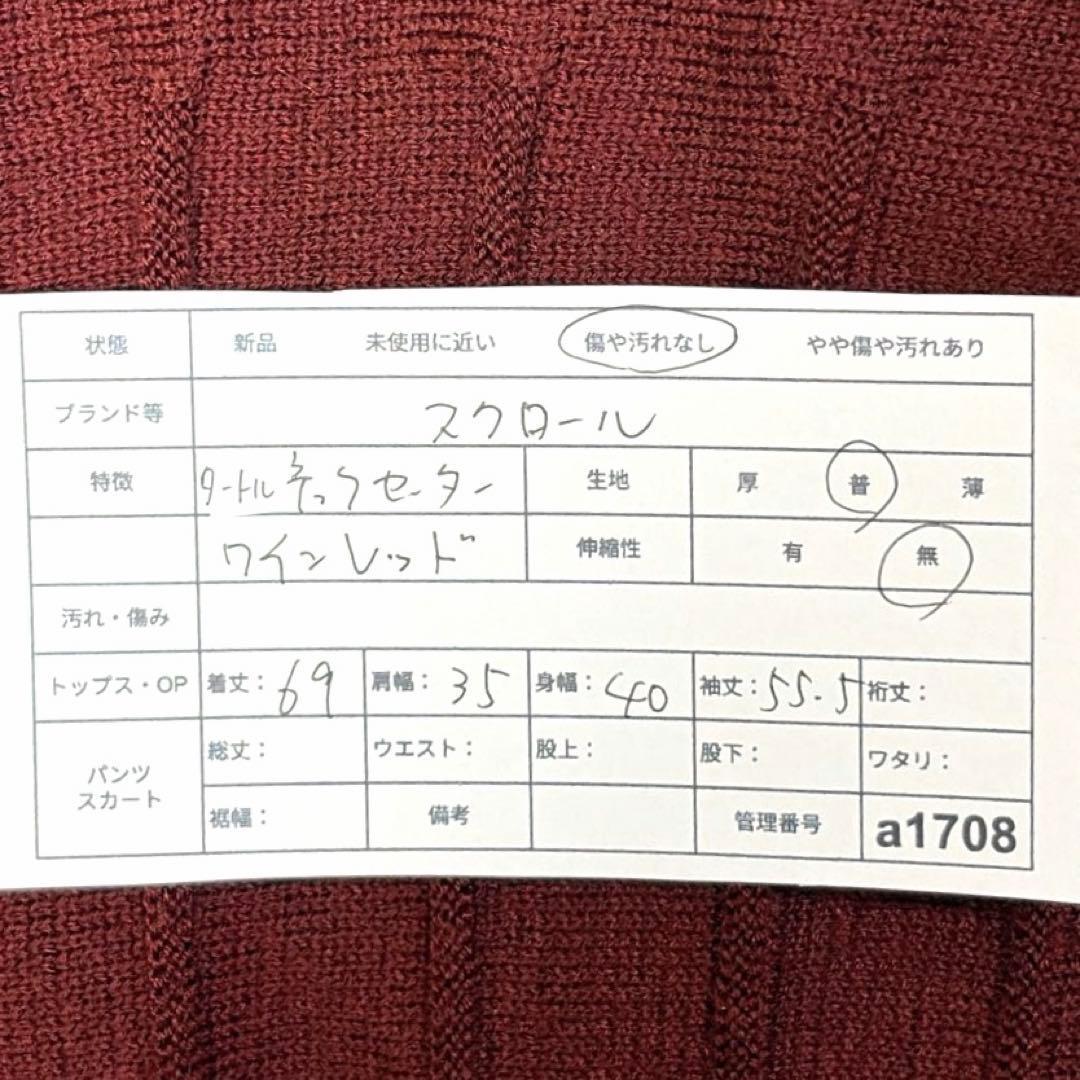 状態 新品 未使用に近い 傷や汚れなし やや傷や汚れあり
ブランド等 スクロール
特徴 タートルネックセーター 生地 厚 普 薄
ワインレッド 伸縮性 有 無
汚れ・傷み
トップス・OP 着丈：69 肩幅：35 身幅：40 袖丈：55.5 裄丈：
パンツ スカート 総丈： ウエスト： 股上： 股下： ワタリ：
裾幅： 備考 管理番号 a1708